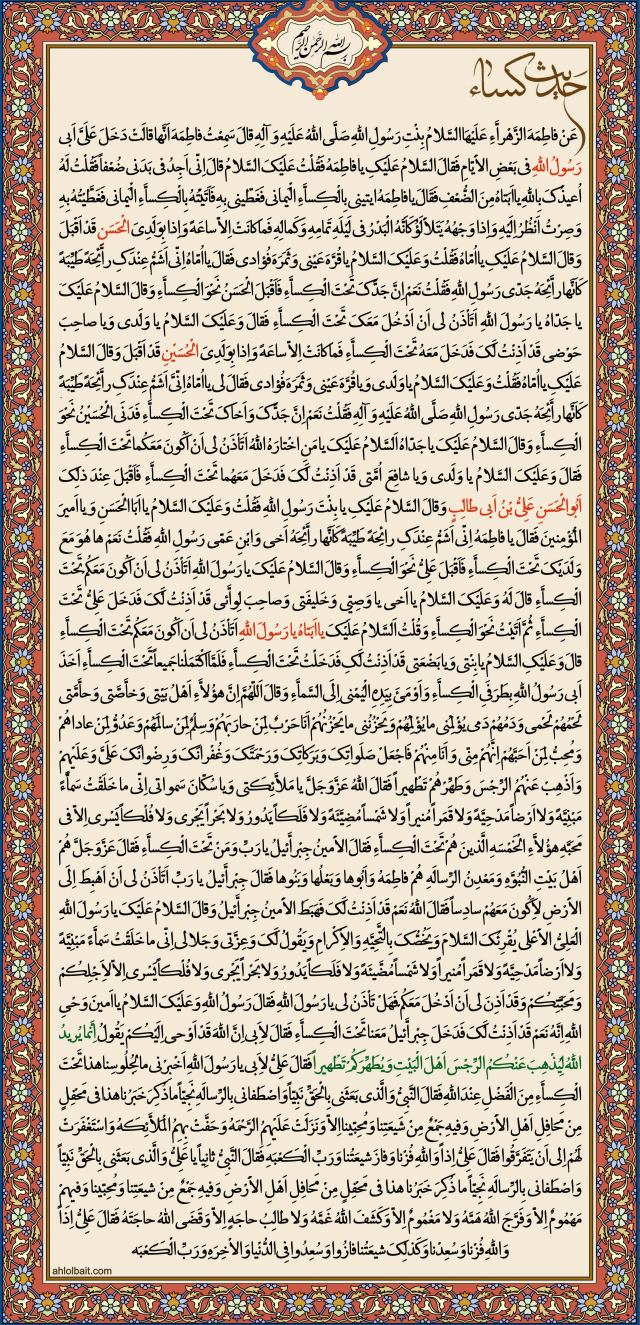 بسم الله الرحمن الرحیم
حدیث کساء
عَنْ فاطِمَهَ الزَّهْراَّءِ عَلَیْهَا السَّلامُ بِنْتِ رَسُولِ اللهِ صَلَّی اللهُ عَلَیْهِ وَ آلِهِ قالَ سَمِعْتُ فاطِمَهَ اَنَّها قالَتْ دَخَلَ عَلَیَّ اَبی
رَسُولُ اللهِ فی بَعْضِ الاَْیّامِ فَقالَ السَّلامُ عَلَیْکِ یا فاطِمَهُ فَقُلْتُ عَلَیْکَ السَّلامُ قالَ اِنّی اَجِدُ فی بَدَنی ضُعْفاً فَقُلْتُ لَهُ
اُعیذُکَ بِاللهِ یا اَبَتاهُ مِنَ الضُّعْفِ فَقَالَ یا فاطِمَهُ ایتینی بِالْکِساَّءِ الْیَمانی فَغَطّینی بِهِ فَاَتَیْتُهُ بِالْکِساَّءِ الْیَمانی فَغَطَّیْتُهُ بِهِ
وَ صِرْتُ اَنْظُرُ اِلَیْهِ وَ اِذا وَجْهُهُ یَتَلاَْلَؤُ کَاَنَّهُ الْبَدْرُ فی لَیْلَهِ تَمامِهِ وَ کَمالِهِ فَما کانَتْ اِلاّ ساعَهً وَ اِذا بِوَلَدِیَ الْحَسَنِ قَدْ اَقْبَلَ
وَ قالَ السَّلامُ عَلَیْکِ یا اُمّاهُ فَقُلْتُ وَ عَلَیْکَ السَّلامُ یا قُرَّهَ عَیْنی وَ ثَمَرَهَ فُؤادی فَقالَ یا اُمّاهُ اِنّی اَشَمُّ عِنْدَکِ راَّئِحَهً طَیِّبَهً
کَاَنَّها راَّئِحَهُ جَدّی رَسُولِ اللهِ فَقُلْتُ نَعَمْ اِنَّ جَدَّکَ تَحْتَ الْکِساَّءِ فَاَقْبَلَ الْحَسَنُ نَحْوَ الْکِساَّءِ وَ قالَ السَّلامُ عَلَیْکَ
یا جَدّاهُ یا رَسُولَ اللهِ اَتَاْذَنُ لی اَنْ اَدْخُلَ مَعَکَ تَحْتَ الْکِساَّءِ فَقالَ وَ عَلَیْکَ السَّلامُ یا وَلَدی وَ یا صاحِبَ
حَوْضی قَدْ اَذِنْتُ لَکَ فَدَخَلَ مَعَهُ تَحْتَ الْکِساَّءِ فَما کانَتْ اِلاّ ساعَهً وَ اِذا بِوَلَدِیَ الْحُسَیْنِ قَدْ اَقْبَلَ وَ قالَ السَّلامُ
عَلَیْکِ یا اُمّاهُ فَقُلْتُ وَ عَلَیْکَ السَّلامُ یا وَلَدی وَ یا قُرَّهَ عَیْنی وَ ثَمَرَهَ فُؤادی فَقالَ لی یا اُمّاهُ اِنّی اَشَمُّ عِنْدَکِ راَّئِحَهً طَیِّبَهً
کَاَنَّها راَّئِحَهُ جَدّی رَسُولِ اللهِ صَلَّی اللهُ عَلَیْهِ وَ آلِهِ فَقُلْتُ نَعَمْ اِنَّ جَدَّکَ وَ اَخاکَ تَحْتَ الْکِساَّءِ فَدَنَی الْحُسَیْنُ نَحْوَ
الْکِساَّءِ وَ قالَ السَّلامُ عَلَیْکَ یا جَدّاهُ اَلسَّلامُ عَلَیْکَ یا مَنِ اخْتارَهُ اللهُ اَتَاْذَنُ لی اَنْ اَکُونَ مَعَکُما تَحْتَ الْکِساَّءِ
فَقالَ وَ عَلَیْکَ السَّلامُ یا وَلَدی وَ یا شافِعَ اُمَّتی قَدْ اَذِنْتُ لَکَ فَدَخَلَ مَعَهُما تَحْتَ الْکِساَّءِ فَاَقْبَلَ عِنْدَ ذلِکَ
اَبُوالْحَسَنِ عَلِیُّ بْنُ اَبی طالِبٍ وَ قالَ السَّلامُ عَلَیْکِ یا بِنْتَ رَسُولِ اللهِ فَقُلْتُ وَ عَلَیْکَ السَّلامُ یا اَبَا الْحَسَنِ وَ یا اَمیرَ
الْمُؤْمِنینَ فَقالَ یا فاطِمَهُ اِنّی اَشَمُّ عِنْدَکِ راَّئِحَهً طَیِّبَهً کَاَنَّها راَّئِحَهُ اَخی وَ ابْنِ عَمّی رَسُولِ اللهِ فَقُلْتُ نَعَمْ ها هُوَ مَعَ
وَلَدَیْکَ تَحْتَ الْکِساَّءِ فَاَقْبَلَ عَلِیُّ نَحْوَ الْکِساَّءِ وَ قالَ السَّلامُ عَلَیْکَ یا رَسُولَ اللهِ اَتَاْذَنُ لی اَنْ اَکُونَ مَعَکُمْ تَحْتَ
الْکِساَّءِ قالَ لَهُ وَ عَلَیْکَ السَّلامُ یا اَخی یا وَصِیّی وَ خَلیفَتی وَ صاحِبَ لِواَّئی قَدْ اَذِنْتُ لَکَ فَدَخَلَ عَلِیُّ تَحْتَ
الْکِساَّءِ ثُمَّ اَتَیْتُ نَحْوَ الْکِساَّءِ وَ قُلْتُ اَلسَّلامُ عَلَیْکَ یا اَبَتاهُ یا رَسُولَ اللهِ اَتَاْذَنُ لی اَن اَکُونَ مَعَکُمْ تَحْتَ الْکِساَّءِ
قالَ وَ عَلَیْکِ السَّلامُ یا بِنْتی وَ یا بَضْعَتی قَدْ اَذِنْتُ لَکِ فَدَخَلْتُ تَحْتَ الْکِساَّءِ فَلَمَّا اکْتَمَلْنا جَمیعاً تَحْتَ الْکِساَّءِ اَخَذَ
اَبی رَسُولُ اللهِ بِطَرَفَیِ الْکِساَّءِ وَ اَوْمَئَ بِیَدِهِ الْیُمْنی اِلَی السَّماَّءِ وَ قالَ اَللّهُمَّ اِنَّ هؤُلاَّءِ اَهْلُ بَیْتی وَ خاَّصَّتی وَ حاَّمَّتی
لَحْمُهُمْ لَحْمی وَ دَمُهُمْ دَمی یُؤْلِمُنی ما یُؤْلِمُهُمْ وَ یَحْزُنُنی ما یَحْزُنُهُمْ اَنَا حَرْبٌ لِمَنْ حارَبَهُمْ وَ سِلْمٌ لِمَنْ سالَمَهُمْ وَ عَدُوٌّ لِمَنْ عاداهُمْ
وَ مُحِبٌّ لِمَنْ اَحَبَّهُمْ اِنَّهُمْ مِنّی وَ اَنَا مِنْهُمْ فَاجْعَلْ صَلَواتِکَ وَ بَرَکاتِکَ وَ رَحْمَتَکَ وَ غُفْرانَکَ وَ رِضْوانَکَ عَلَیَّ وَ عَلَیْهِمْ
وَ اَذْهِبْ عَنْهُمُ الرِّجْسَ وَ طَهِّرْهُمْ تَطْهیراً فَقالَ اللهُ عَزَّوَجَلَّ یا مَلاَّئِکَتی وَ یا سُکّانَ سَمواتی اِنّی ما خَلَقْتُ سَماَّءً
مَبْنِیَّهً وَ لا اَرْضاً مَدْحِیَّهً وَ لا قَمَراً مُنیراً وَ لا شَمْساً مُضِیَّئَهً وَ لا فَلَکاً یَدُورُ وَ لا بَحْراً یَجْری وَ لا فُلْکاً یَسْری اِلاّ فی
مَحَبَّهِ هؤُلاَّءِ الْخَمْسَهِ الَّذینَ هُمْ تَحْتَ الْکِساَّءِ فَقالَ الاَْمینُ جِبْراَّئیلُ یا رَبِّ وَ مَنْ تَحْتَ الْکِساَّءِ فَقالَ عَزَّوَجَلَّ هُمْ
اَهْلُ بَیْتِ النُّبُوَّهِ وَ مَعْدِنُ الرِّسالَهِ هُمْ فاطِمَهُ وَ اَبُوها وَ بَعْلُها وَ بَنُوها فَقالَ جِبْراَّئیلُ یا رَبِّ اَتَاْذَنُ لی اَنْ اَهْبِطَ اِلَی
الاَْرْضِ لاَِکُونَ مَعَهُمْ سادِساً فَقالَ اللهُ نَعَمْ قَدْ اَذِنْتُ لَکَ فَهَبَطَ الاَْمینُ جِبْراَّئیلُ وَ قالَ السَّلامُ عَلَیْکَ یا رَسُولَ اللهِ
الْعَلِیُّ الاَْعْلی یُقْرِئُکَ السَّلامَ وَ یَخُصُّکَ بِالتَّحِیَّهِ وَ الاِْکْرامِ وَ یَقُولُ لَکَ وَ عِزَّتی وَ جَلالی اِنّی ما خَلَقْتُ سَماَّءً مَبْنِیَّهً
وَ لا اَرْضاً مَدْحِیَّهً وَ لا قَمَراً مُنیراً وَ لا شَمْساً مُضَّیئَهً وَ لا فَلَکاً یَدُورُ وَ لا بَحْراً یَجْری وَ لا فُلْکاً یَسْری اِلاّ لاَِجْلِکُمْ
وَ مَحَبَّتِکُمْ وَ قَدْ اَذِنَ لی اَنْ اَدْخُلَ مَعَکُمْ فَهَلْ تَاْذَنُ لی یا رَسُولَ اللهِ فَقالَ رَسُولُ اللهِ وَ عَلَیْکَ السَّلامُ یا اَمینَ وَحْیِ
اللهِ اِنَّهُ نَعَمْ قَدْ اَذِنْتُ لَکَ فَدَخَلَ جِبْراَّئیلُ مَعَنا تَحْتَ الْکِساَّءِ فَقالَ لاَِبی اِنَّ اللهَ قَدْ اَوْحی اِلَیْکُمْ یَقُولُ اِنَّما یُریدُ
اللهُ لِیُذْهِبَ عَنْکُمُ الرِّجْسَ اَهْلَ الْبَیْتِ وَ یُطَهِّرَکُمْ تَطْهیراً فَقالَ عَلِیُّ لاَِبی یا رَسُولَ اللهِ اَخْبِرْنی ما لِجُلُوسِنا هذا تَحْتَ
الْکِساَّءِ مِنَ الْفَضْلِ عِنْدَ اللهِ فَقالَ النَّبِیُّ وَ الَّذی بَعَثَنی بِالْحَقِّ نَبِیّاً وَ اصْطَفانی بِالرِّسالَهِ نَجِیّاً ما ذُکِرَ خَبَرُنا هذا فی مَحْفِلٍ
مِنْ مَحافِلِ اَهْلِ الاَْرْضِ وَ فیهِ جَمْعٌ مِنْ شَیعَتِنا وَ مُحِبّینا اِلاّ وَ نَزَلَتْ عَلَیْهِمُ الرَّحْمَهُ وَ حَفَّتْ بِهِمُ الْمَلاَّئِکَهُ وَ اسْتَغْفَرَتْ
لَهُمْ اِلی اَنْ یَتَفَرَّقُوا فَقالَ عَلِیُّ اِذاً وَ اللهِ فُزْنا وَ فازَ شیعَتُنا وَ رَبِّ الْکَعْبَهِ فَقالَ النَّبِیُّ ثانِیاً یا عَلِیُّ وَ الَّذی بَعَثَنی بِالْحَقِّ نَبِیّاً
وَ اصْطَفانی بِالرِّسالَهِ نَجِیّاً ما ذُکِرَ خَبَرُنا هذا فی مَحْفِلٍ مِنْ مَحافِلِ اَهْلِ الاَْرْضِ وَ فیهِ جَمْعٌ مِنْ شیعَتِنا وَ مُحِبّینا وَ فیهِمْ
مَهْمُومٌ اِلاّ وَ فَرَّجَ اللهُ هَمَّهُ وَ لا مَغْمُومٌ اِلاّ وَ کَشَفَ اللهُ غَمَّهُ وَ لا طالِبُ حاجَهٍ اِلاّ وَ قَضَی اللهُ حاجَتَهُ فَقالَ عَلِیُّ اِذاً
وَ اللهِ فُزْنا وَ سُعِدْنا وَ کَذلِکَ شیعَتُنا فازُوا وَ سُعِدُوا فِی الدُّنْیا وَ الاْخِرَهِ وَ رَبِّ الْکَعْبَهِ
ahlolbait.com